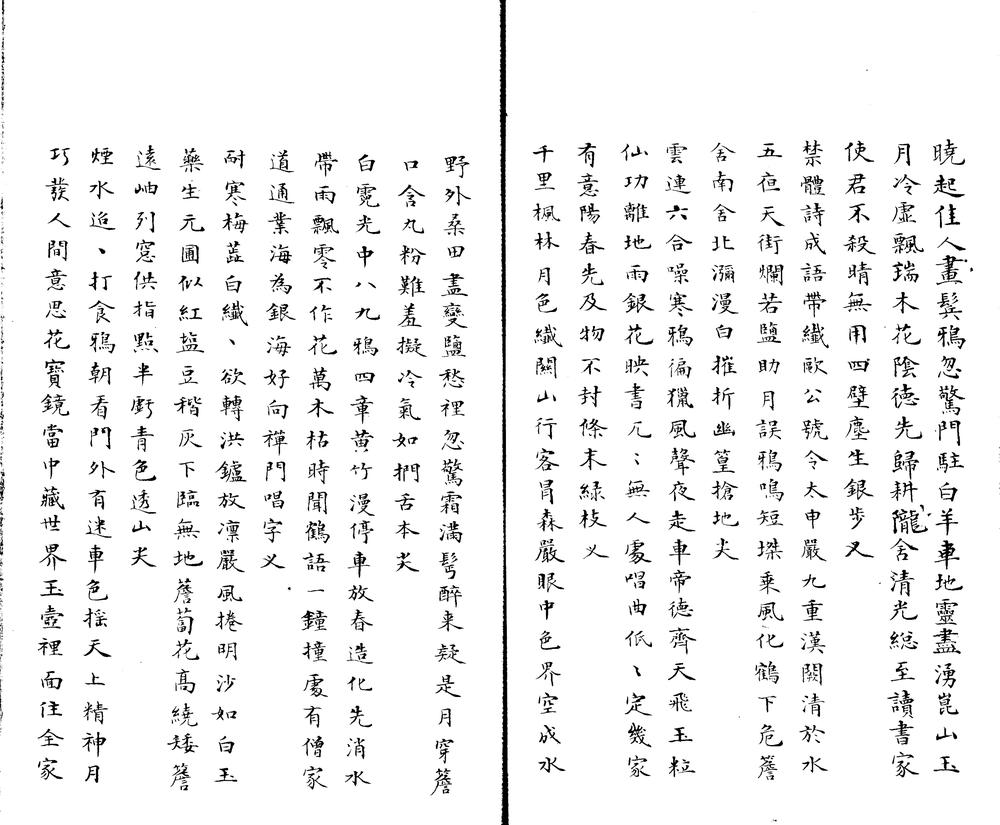 曉起佳人畫鬂鴉忽驚門駐白羊車地靈盡湧崑山玉
月冷虛飄瑞木花陰德先歸耕隴舍清光総至讀書家
使君不殺晴無用四壁塵生銀步叉
禁體詩成語帶纖歐公號令太申嚴九重漢闕清於水
五夜天街爛若鹽助月誤鴉鳴短墚乘風化鶴下危簷
舍南舍北瀰漫白摧折幽篁搶地尖
雲連六合噪寒鴉徧獵風聲夜走車帝德齊天飛玉粒
仙功離地雨銀花映書兀〻無人處唱曲低〻定幾家
有意陽春先及物不封條末綠枝义
千里楓林月色纖關山行客冒森嚴眼中色界空成水
野外桑田盡變鹽愁裡忽驚霜滿髩醉来疑是月穿簷
口含丸粉難羞擬冷氣如捫舌本尖
白霓光中八九鴉四章黄竹漫停車放春造化先消水
帶雨飄零不作花萬木枯時聞鶴語一鐘撞處有僧家
道通業海為銀海好向禪門唱字义
耐寒梅蕋白纖〻欲轉洪鑪放凛嚴風捲明沙如白玉
藥生元圃似紅盐豆稭灰下臨無地薝蔔花高繞矮簷
遠岫列窓供指點半虧青色透山尖
煙水迢〻打食鴉朝看門外有迷車色揺天上精神月
巧發人間意思花寶鏡當中藏世界玉壺裡面住全家